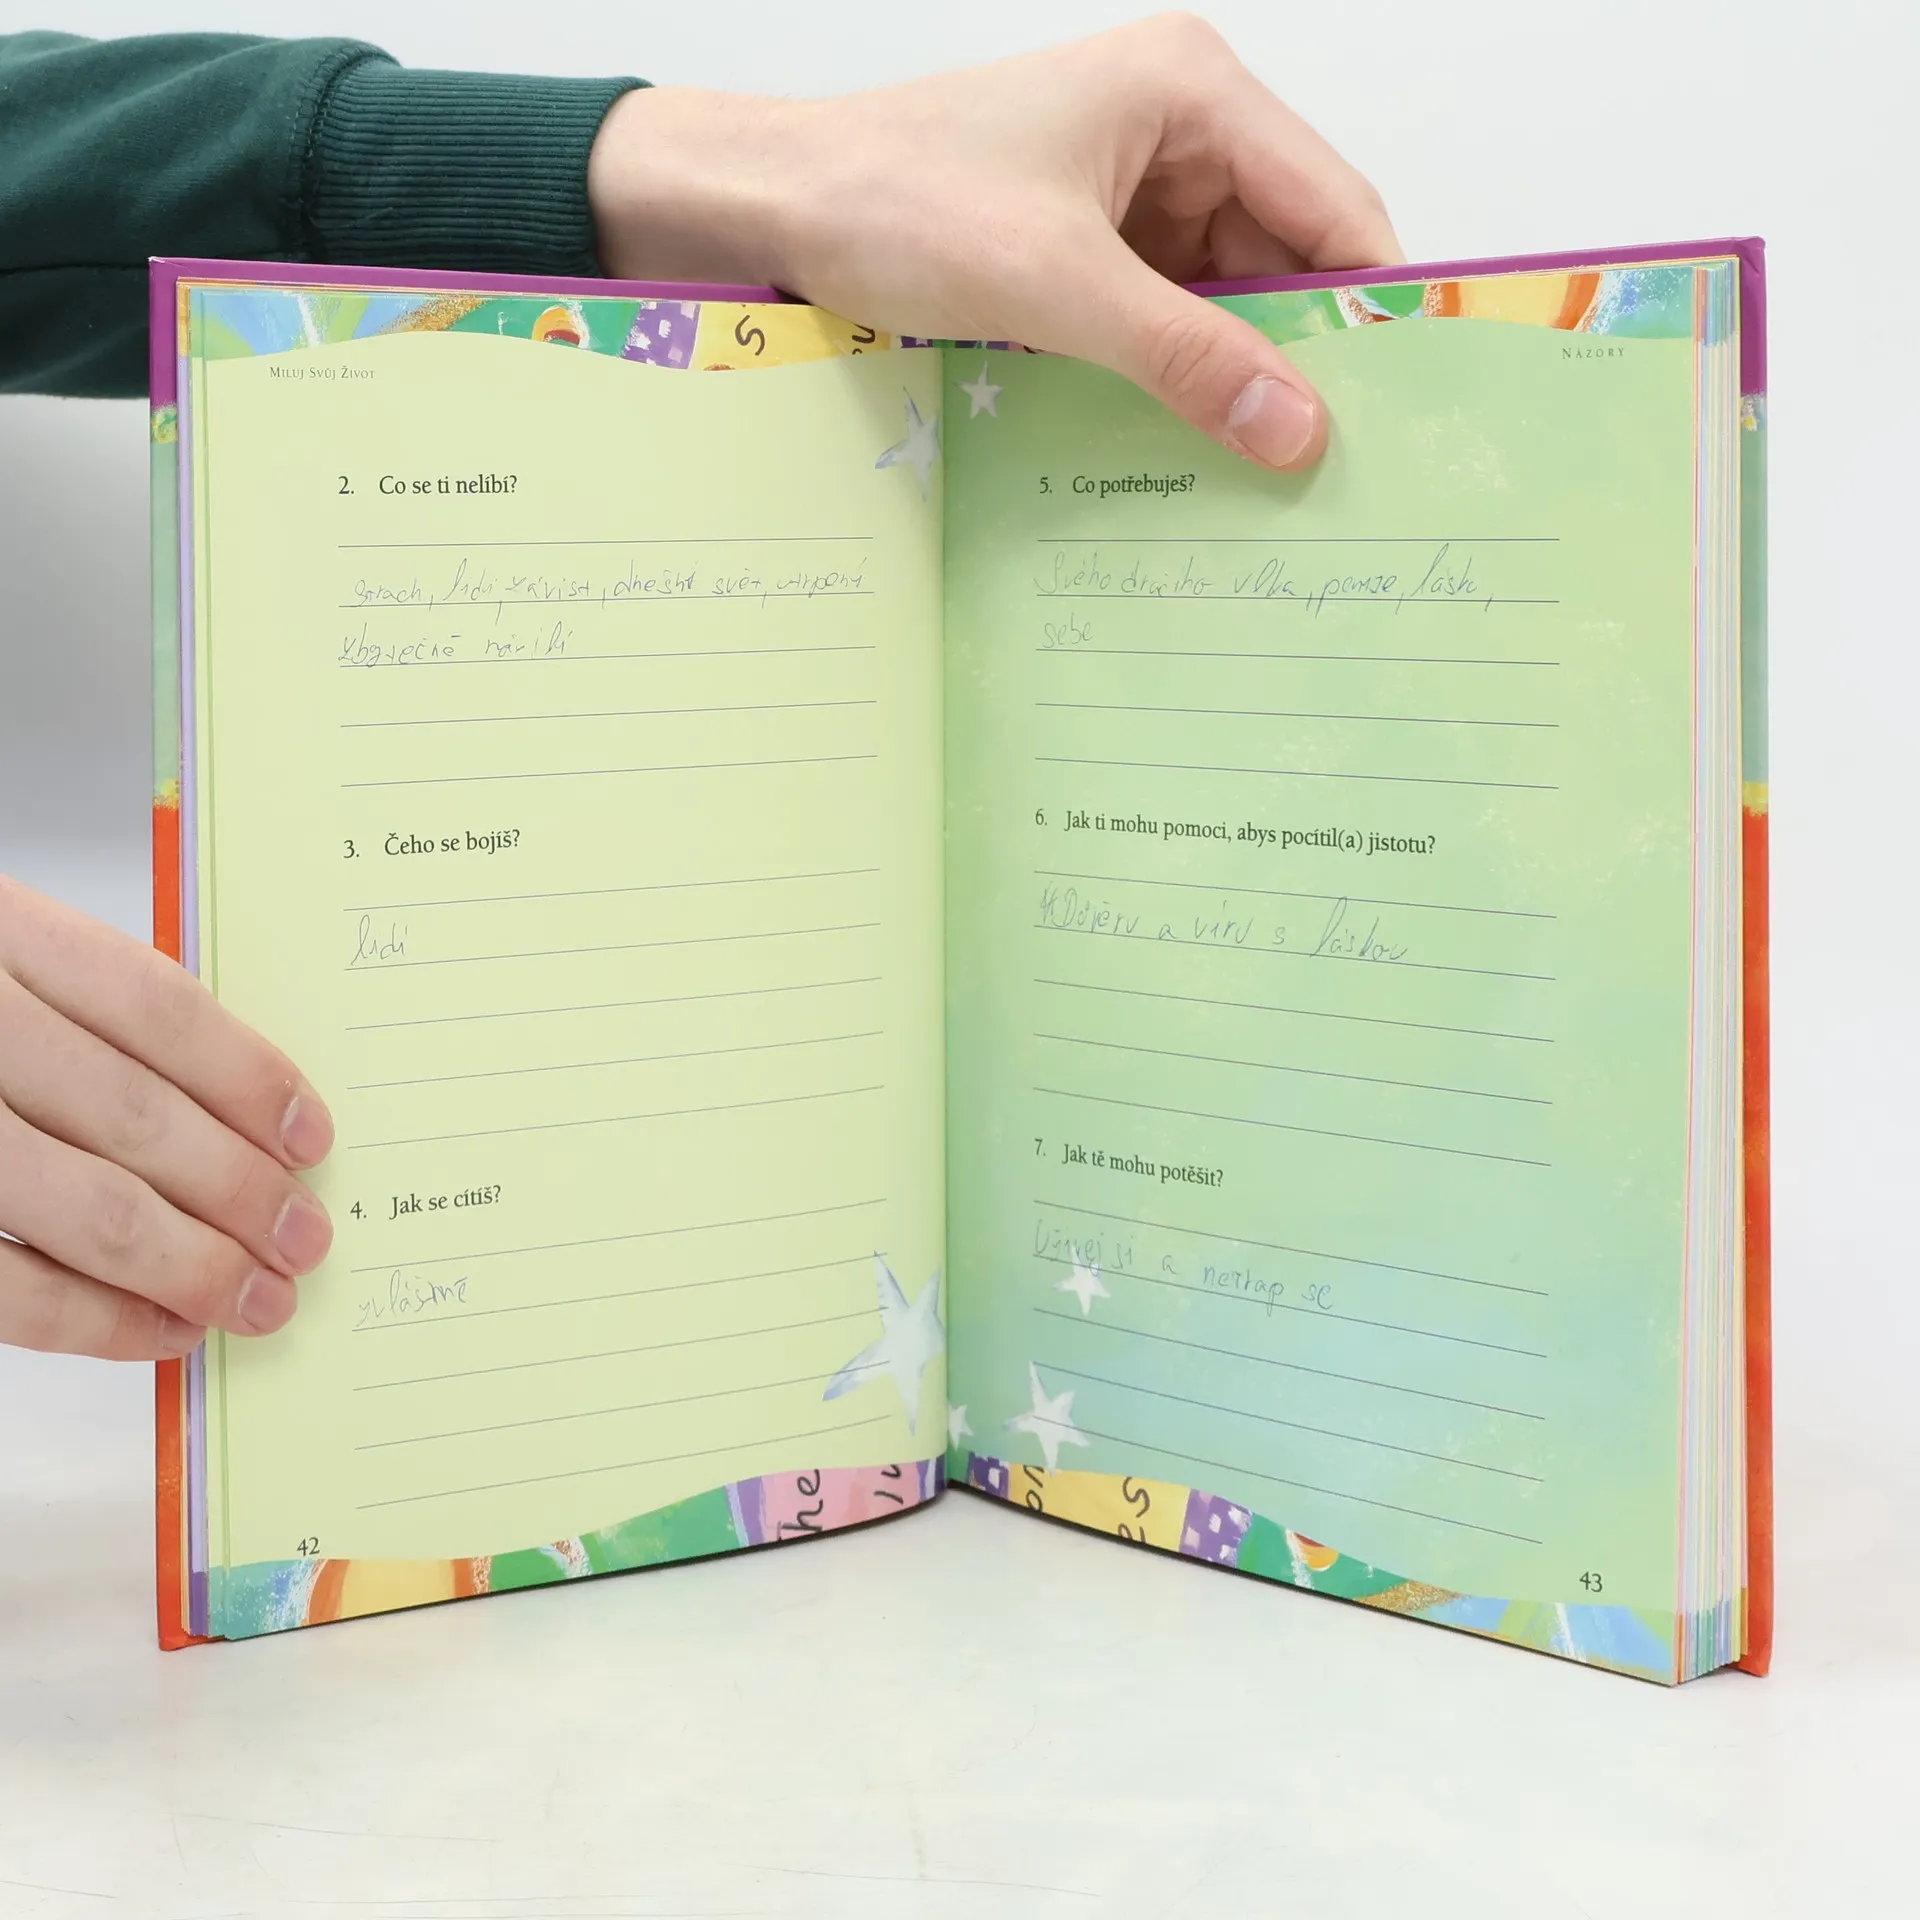 Miluj Svůj Život
2. Co se ti nelíbí?
strach, lidi, závist, dnešní svět, utrpení
zbytečné násilí
3. Čeho se bojíš?
lidí
4. Jak se cítíš?
zvláštně
42
Názory
5. Co potřebuješ?
Svého dračího vlka, peníze, lásku,
sebe
6. Jak ti mohu pomoci, abys pocítil(a) jistotu?
Důvěru a víru s láskou
7. Jak tě mohu potěšit?
Užívej si a netrap se
43